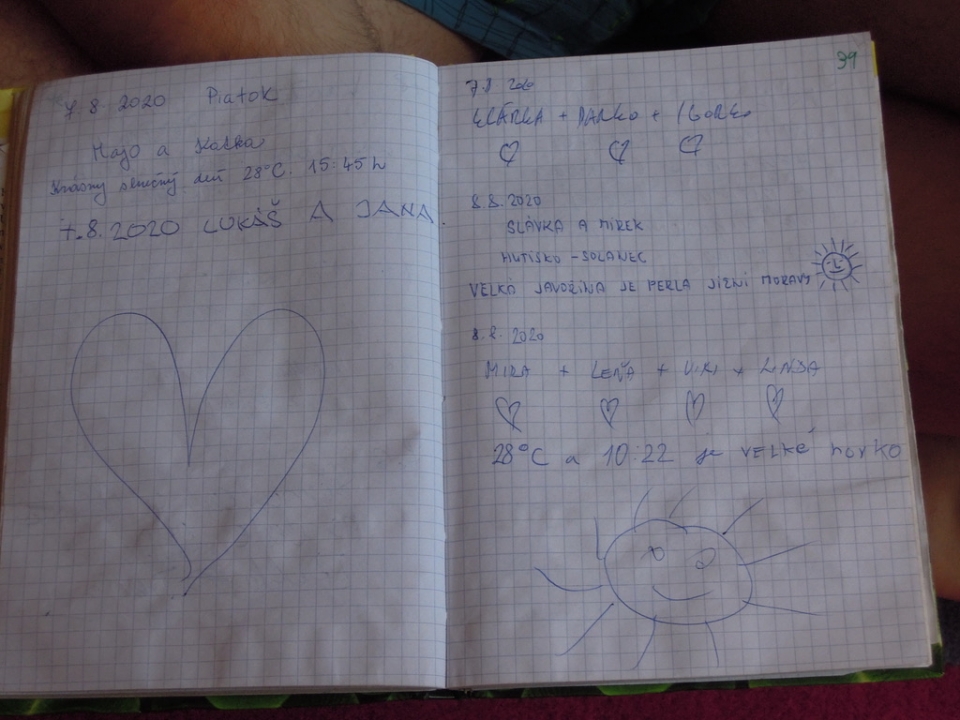 7. 8. 2020 Piatok
Majo a Katka
Krásny slnečný deň 28°C. 15:45 h
7.8.2020 LUKÁŠ A JANA.
99
7.8 2020
KLÁRKA + DARKO +
8.8.2020
SLÁVKA A MIREK
HUTISKO - SOLANEC
VELKÁ JAVOŘINA JE PERLA JIŽNÍ MORAVY
8.8.2020
MIRA + LEŇA + VIKI + LINDA
28°C a 10:22 je VELKÉ horko